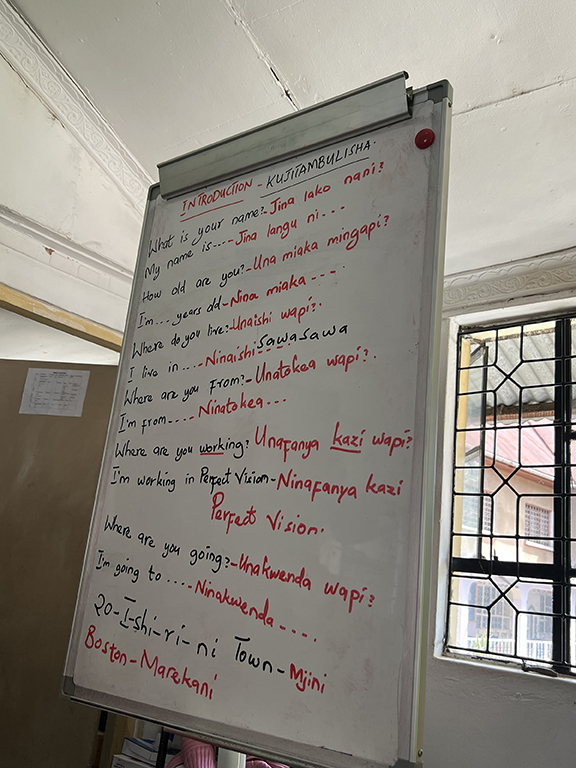 INTRODUCTION - KUJITAMBULISHA.
What is your name? - Jina lako nani?
My name is.... - Jina langu ni...
How old are you? - Una miaka mingapi?
I'm... years old - Nina miaka....
Where do you live? - Unaishi wapi?
I live in.... - Ninaishi sawasawa
Where are you from? - Unatokea wapi?
I'm from.... Ninatokea...
Where are you working? Unafanya kazi wapi?
I'm working in Perfect Vision - Ninafanya kazi
Perfect Vision.
Where are you going? - Unakwenda wapi?
I'm going to .... - Ninakwenda....
20 - I-shi-ri-ni Town - Mjini
Boston - Marekani